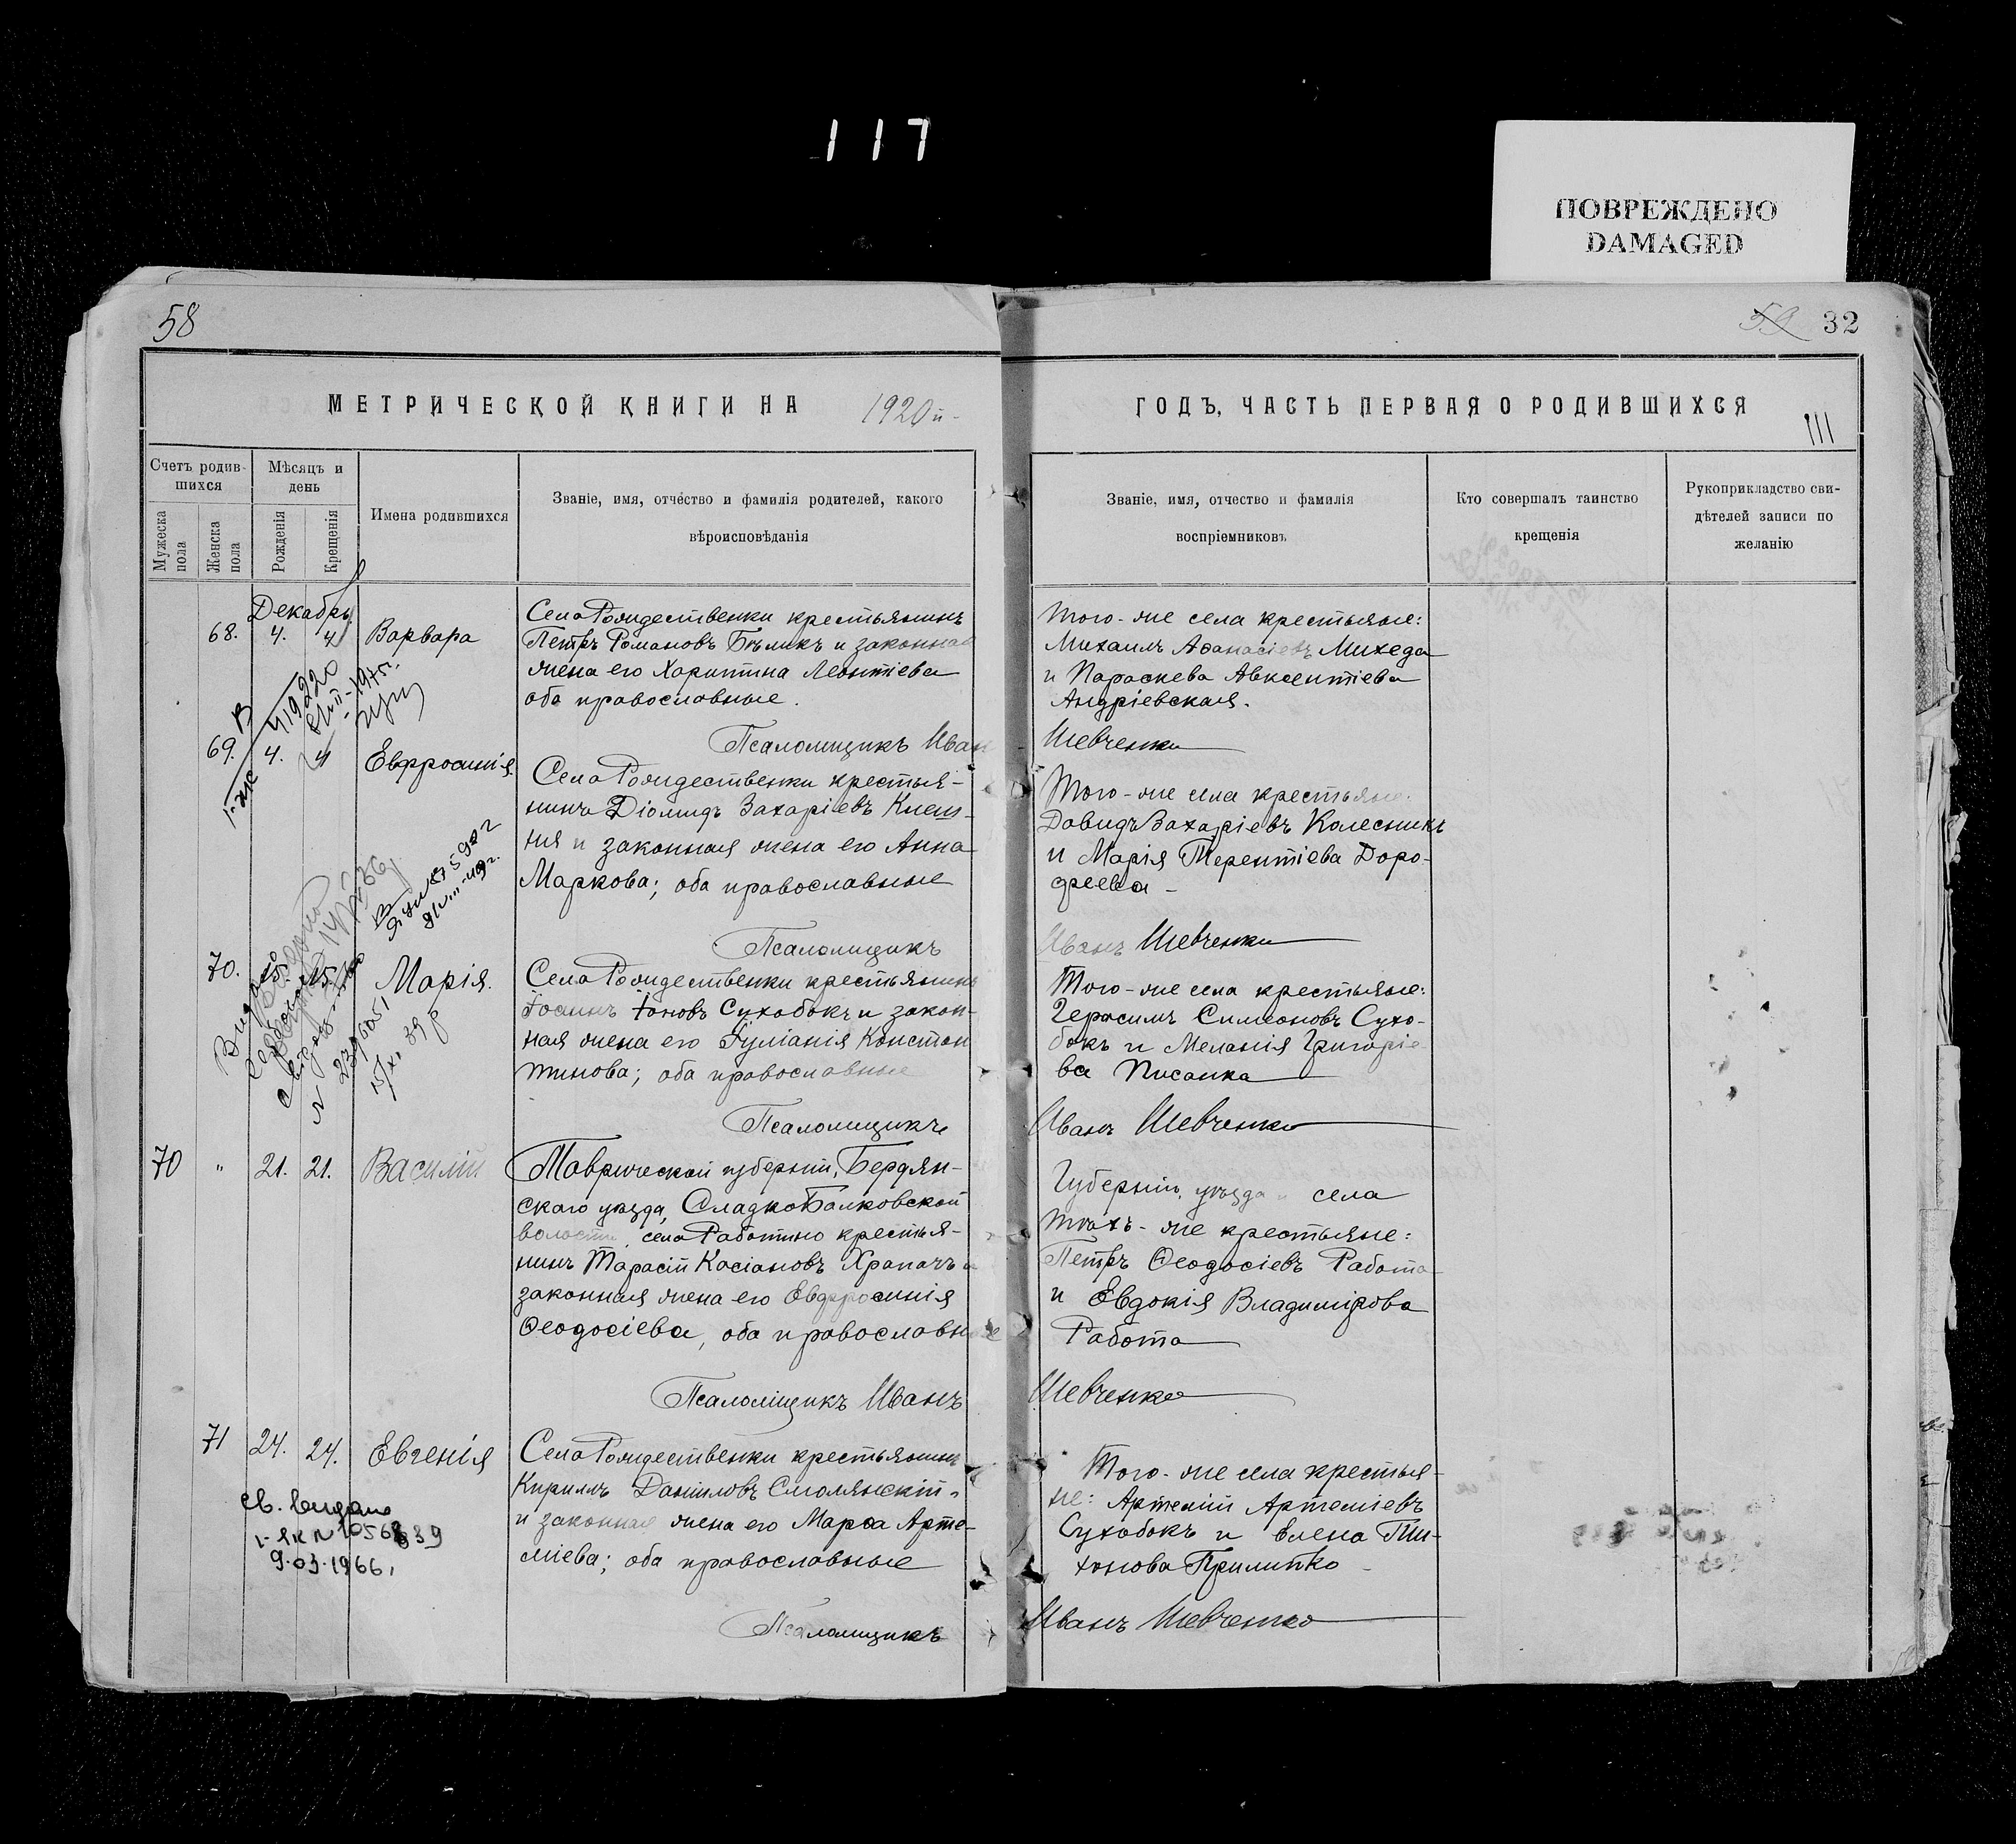 117
ПОВРЕЖДЕНО
DAMAGED
58
59 32
МЕТРИЧЕСКОЙ КНИГИ НА 1920й
ГОДЪ, ЧАСТЬ ПЕРВАЯ О РОДИВШИХСЯ
111
Счетъ родив-
шихся
Мужеска пола
Женска пола
Мѣсяцъ и
день
Рожденія
Крещенія
Имена родившихся
Званіе, имя, отчество и фамилія родителей, какого
вѣроисповѣданія
Званіе, имя, отчество и фамилія
воспріемниковъ
Кто совершалъ таинство
крещенія
Рукоприкладство сви-
дѣтелей записи по
желанію
Декабрь
68. 4. 4 Варвара
Села Рождественки крестьянинъ
Петръ Романовъ Бѣликъ и законная
жена его Харитина Леонтіева
оба православные.
Того-же села крестьяне:
Михаилъ Аѳанасіевъ Михеда
и Параскева Авксентіева
Андріевская.
Псаломщикъ Иванъ Шевченко
69. 4. 4 Евфросинія.
Села Рождественки крестья-
нинъ Діомидъ Захаріевъ Клеш-
ня и законная жена его Анна
Маркова; оба православные
Того-же села крестьяне:
Давидъ Захаріевъ Колесникъ
и Марія Терентіева Доро-
феева
Псаломщикъ Иванъ Шевченко
70. 15. 15. Марія.
Села Рождественки крестьянинъ
Іоаннъ Іоновъ Сухобокъ и закон-
ная жена его Іуліанія Констан
тинова; оба православные
Того-же села крестьяне:
Герасимъ Симеоновъ Сухо-
бокъ и Меланія Григоріе-
ва Писанка
Псаломщикъ Иванъ Шевченко
70 " 21. 21. Василій
Таврической губерніи, Бердян-
скаго уѣзда, Сладко Балковской
волости, села Работино крестья-
нинъ Тарасій Касіановъ Храпачъ и
законная жена его Евфросинія
Ѳеодосіева, оба православные
Губерніи, уѣзда и села
тѣхъ-же крестьяне:
Петръ Ѳеодосіевъ Работа
и Евдокія Владимірова
Работа
Псаломщикъ Иванъ Шевченко
71 24. 24. Евгенія
Села Рождественки крестьянинъ
Кириллъ Даніиловъ Смолянскій
и законная жена его Марѳа Арте-
міева; оба православные
Того-же села крестья-
не: Артемій Артеміевъ
Сухобокъ и Елена Ти-
хонова Прилипко
св. видано
9.03.1966.
Псаломщикъ Иванъ Шевченко